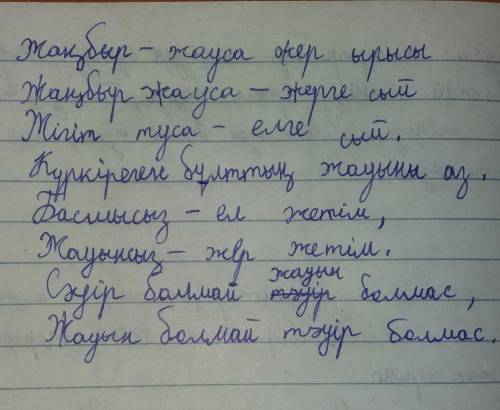 Жаңбыр – жауса жер ырысы
Жаңбыр жауса – жерге сый
Жігіт туса – елге сый.
Күркіреген бұлттың жауыны аз.
Басшысыз – ел жетім,
Жауынсыз – жер жетім.
Сәуір болмай жауын болмас,
Жауын болмай тәуір болмас.